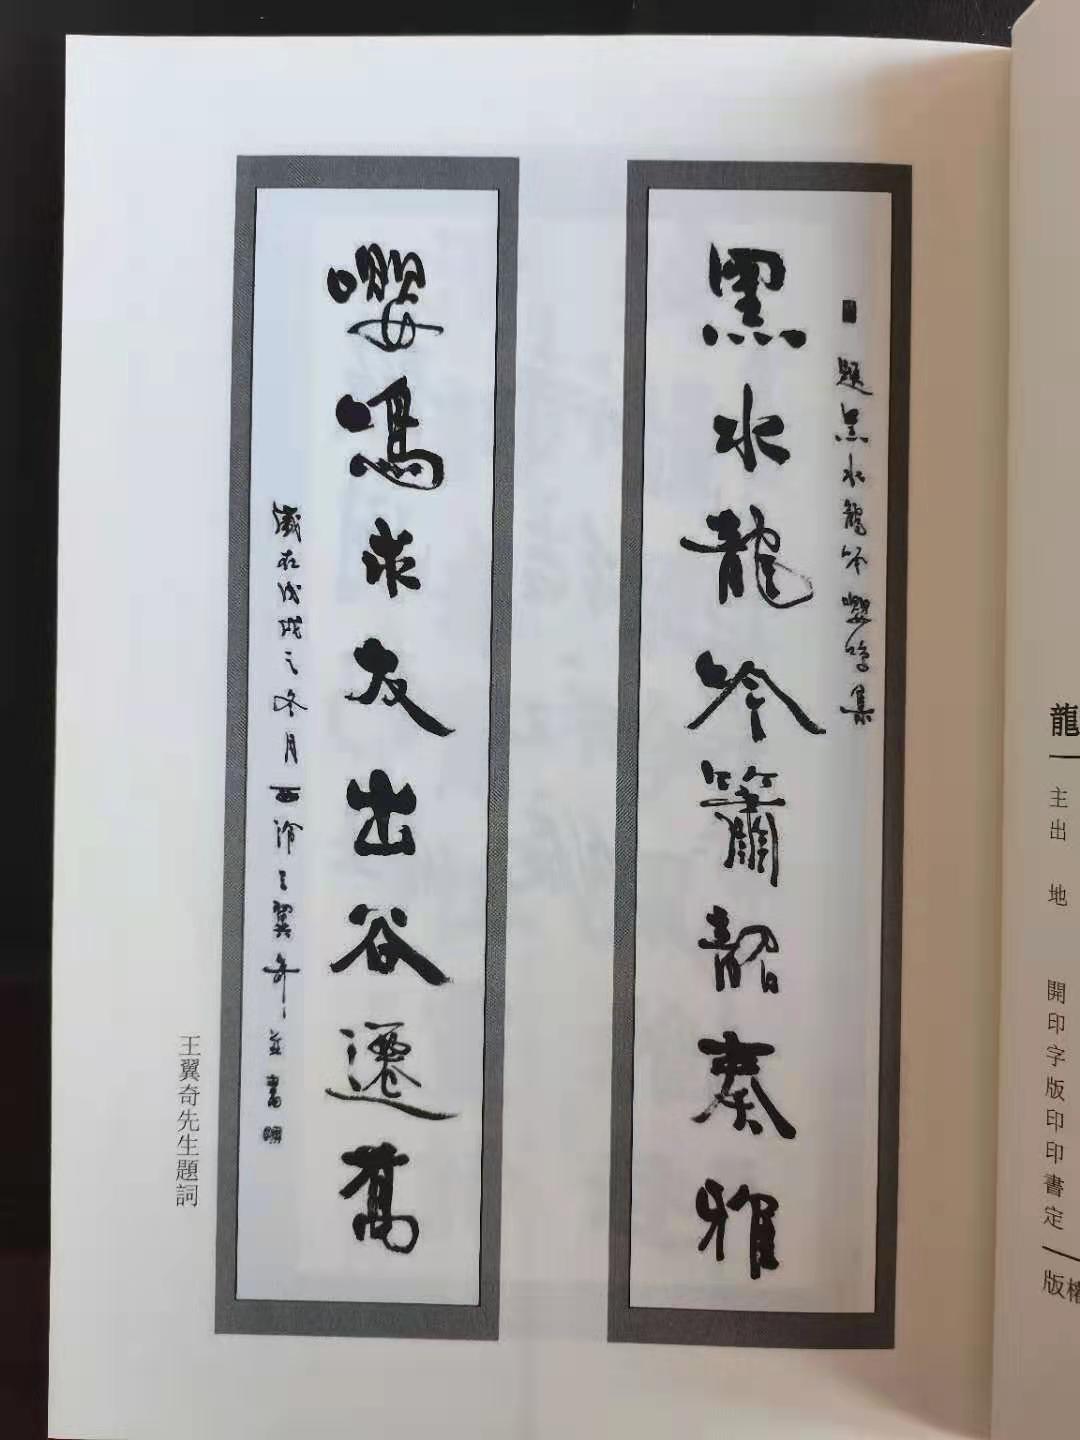 題黑水龍吟嚶鳴集
黑水龍吟簫韶奏雅
嚶鳴求友出谷遷喬
歲在戊戌之冬月西泠王翼奇并書
王翼奇先生題詞
龍
主
出
地
開
印
字
版
印
印
書
定
版權